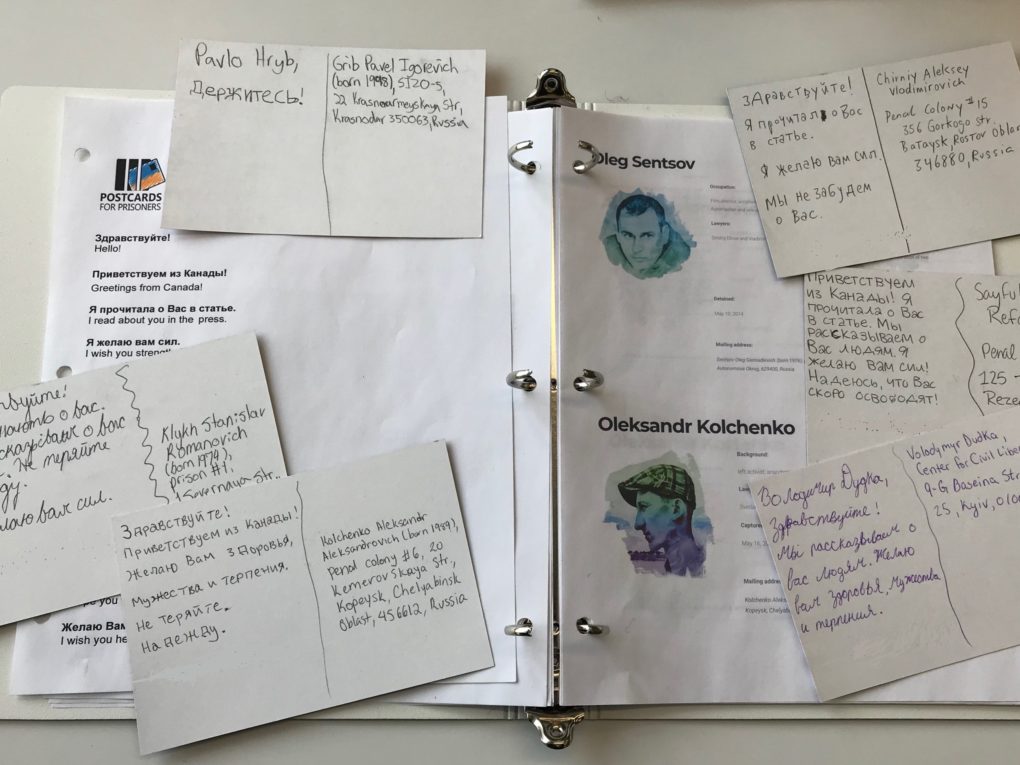 Pavlo Hryb,
Держитесь!
Grib Pavel Igorevich
(born 1998), SIZO-5,
22 Krasnoarmeyskaya Str,
Krasnodar 350063, Russia
POSTCARDS
FOR PRISONERS
Здравствуйте!
Hello!
Приветствуем из Канады!
Greetings from Canada!
Я прочитала о Вас в статье.
I read about you in the press.
Я желаю вам сил.
I wish you strength
Желаю Вам
I wish you he
о вас.
о вас
Не теряйте
вам сил.
Klykh Stanislav
Romanovich
(born 1974),
prison #1,
Здравствуйте!
Приветствуем из Канады!
Желаю Вам здоровья,
Мужества и терпения.
Не теряйте.
Надежду.
Kolchenko Aleksandr
Aleksandrovich (born 1989),
penal colony #6, 20
Kemerovskaya Str.,
Kopeysk, Chelyabinsk
Oblast, 456612, Russia
Oleg Sentsov
Occupation:
Lawyers:
Detained:
May 10, 2014
Mailing address:
Autonomous Okrug, 629400, Russia
Oleksandr Kolchenko
Background:
left activist,
Mailing addre
Kolchenko Aleks
Kopeysk, Chelyab
Здравствуйте!
Я прочитал о Вас
в статье.
Я желаю вам сил.
Мы не забудем
о Вас.
Chirniy Aleksey
Vladimirovich
Penal Colony #15
356 Gorkogo str.
Bataysk, Rostov Oblas
346880, Russia
Приветствуем
из Канады! Я
прочитала о Вас
в статье. Мы
рассказываем о
Вас людям. Я
желаю вам сил!
Надеюсь, что Вас
скоро освободят!
Sayful
Refa
Penal
125 -
Володимир Дудка,
Здравствуйте!
Мы рассказываем о
вас людям. Желаю
вам здоровья, мужества
и терпения.
Volodymyr Dudka,
Center for Civil Liber
9-G Baseina Str
25, Kyiv, 010